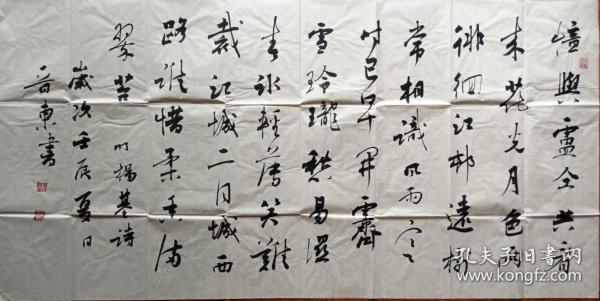 憶與盧仝共醉
來花光月色兩
徘徊江邨遠樹
常相識風雨
時已早開霽
雪玲瓏愁易溼
春冰輕薄笑難
裁江城二月城西
路誰惜柔香滿
翠苔 明楊基詩
歲次壬辰夏日
晉東書
孔夫子旧书网
www.kongfz.com